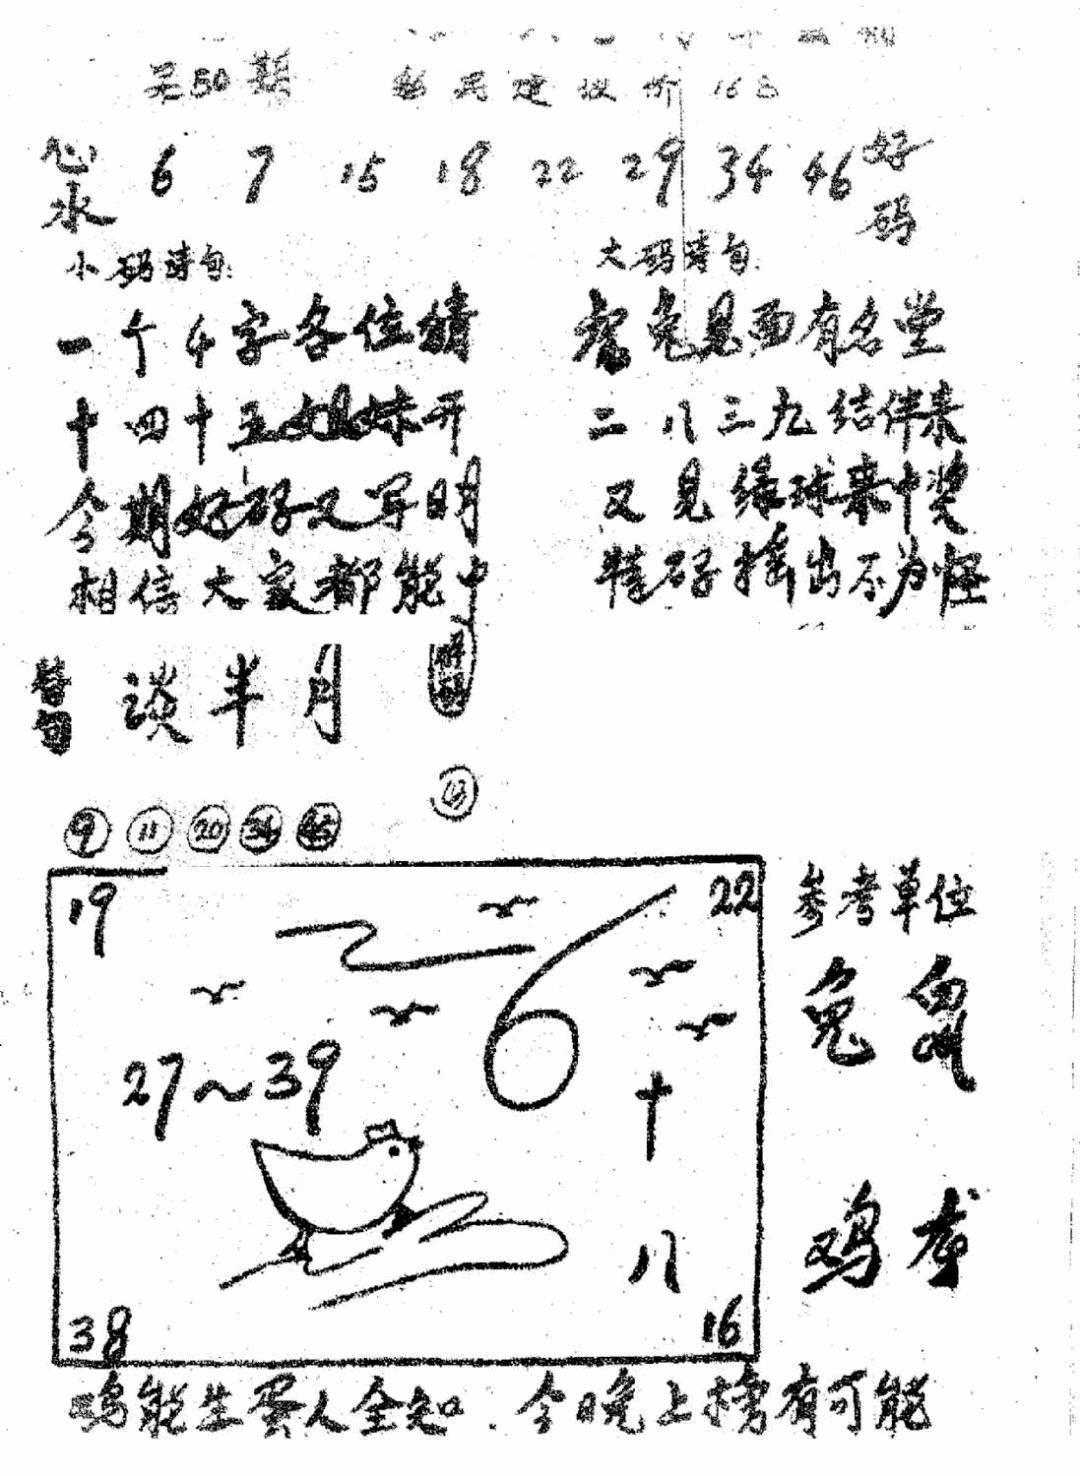 第50期 彩民建议价16
心水 6 7 15 18 22 29 34 46 好码
小码诗句:
一个4字各位猜
十四十五姐妹开
今期好码又写明
相信大家都能中
大码诗句:
兔见面有名堂
二八三九结伴来
又见绿球来中奖
特码摇出不为怪
谈半月
9 11 20
19 22
6
27~39
十
八
38 16
参考单位
兔 鼠
鸡 龙
鸡能生蛋人全知.今晚上榜有可能